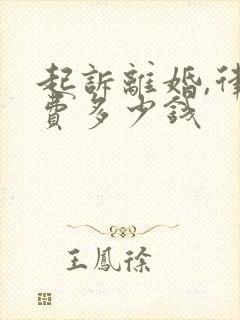 起訴離婚,律
費多少錢
王鳳徐